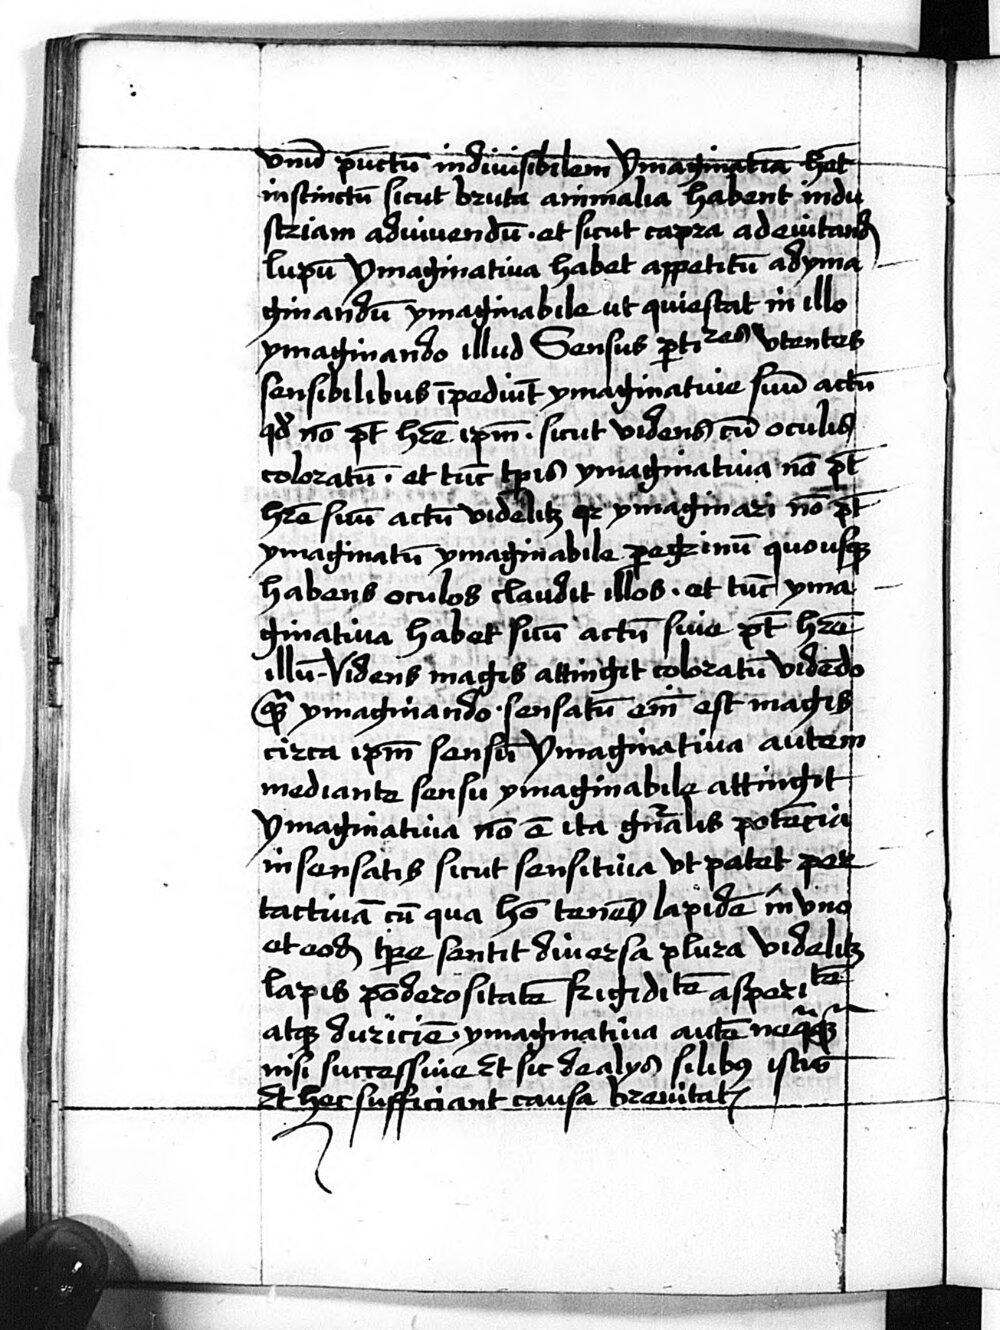 vnū pūctū indiuisibilem Ymaginatīa hēt
instinctū sicut bruta animalia habent indu
striam adviuendū · et sicut capra adeuitand
lupū Ymaginatiua habet appetitū adyma
ginandū ymaginabile ut quiescat in illo
ymaginando illud Sensus ꝑtiᶜʳᵉˢ vtentes
sensibilibus īpediūt ymaginatiuie suū actū
qd nō pt̄ hr̄e ipm̄ · sicut videns cū oculis
coloratū · et tūc tꝑis ymaginatiua nō pt̄
hr̄e suū actū videlitꝫ qr ymaginari nō pt̄
ymaginatū ymaginabile ꝑegrinū quousqꝫ
habens oculos claudit illos · et tūc yma
ginatiua habet sicū actū siue pt̄ hr̄e
illū · Videns magis attingit coloratū vidēdo
qꝫ̄ ymaginando · sensatū em̄ est magis
circa ipm̄ sensū Ymaginatiua autem
mediante sensu ymaginabile attingit
Ymaginatiua nō ē ita gn̄alis potēcia
in sensatis sicut sensitiua vt patet per
tactiuā cū qua hō tenēs lapidē in vno
et eodꝫ tꝑe sentit diuersa plura videlitꝫ
lapis pōderositatē frigiditē asperitē
atqꝫ duriciē · ymaginatiua autē neqꝗꝫ̄
nisi successiue Et sic dealys silibꝰ istis
Et hec sufficiant causa breuitatꝭ